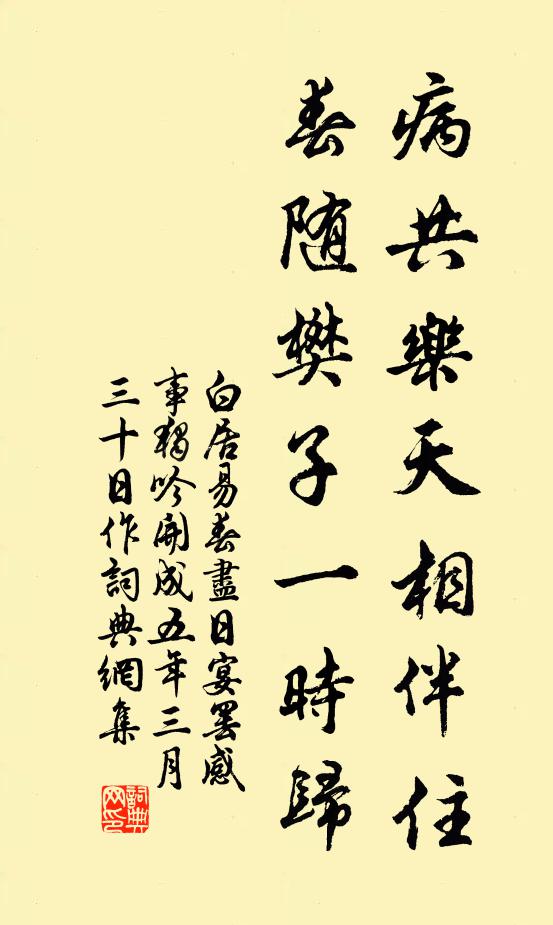 病共樂天相伴住
春随樊子一時歸
白居易春盡日宴罢感
事獨吟開成五年三月
三十日作詞典網集
詞典
网印